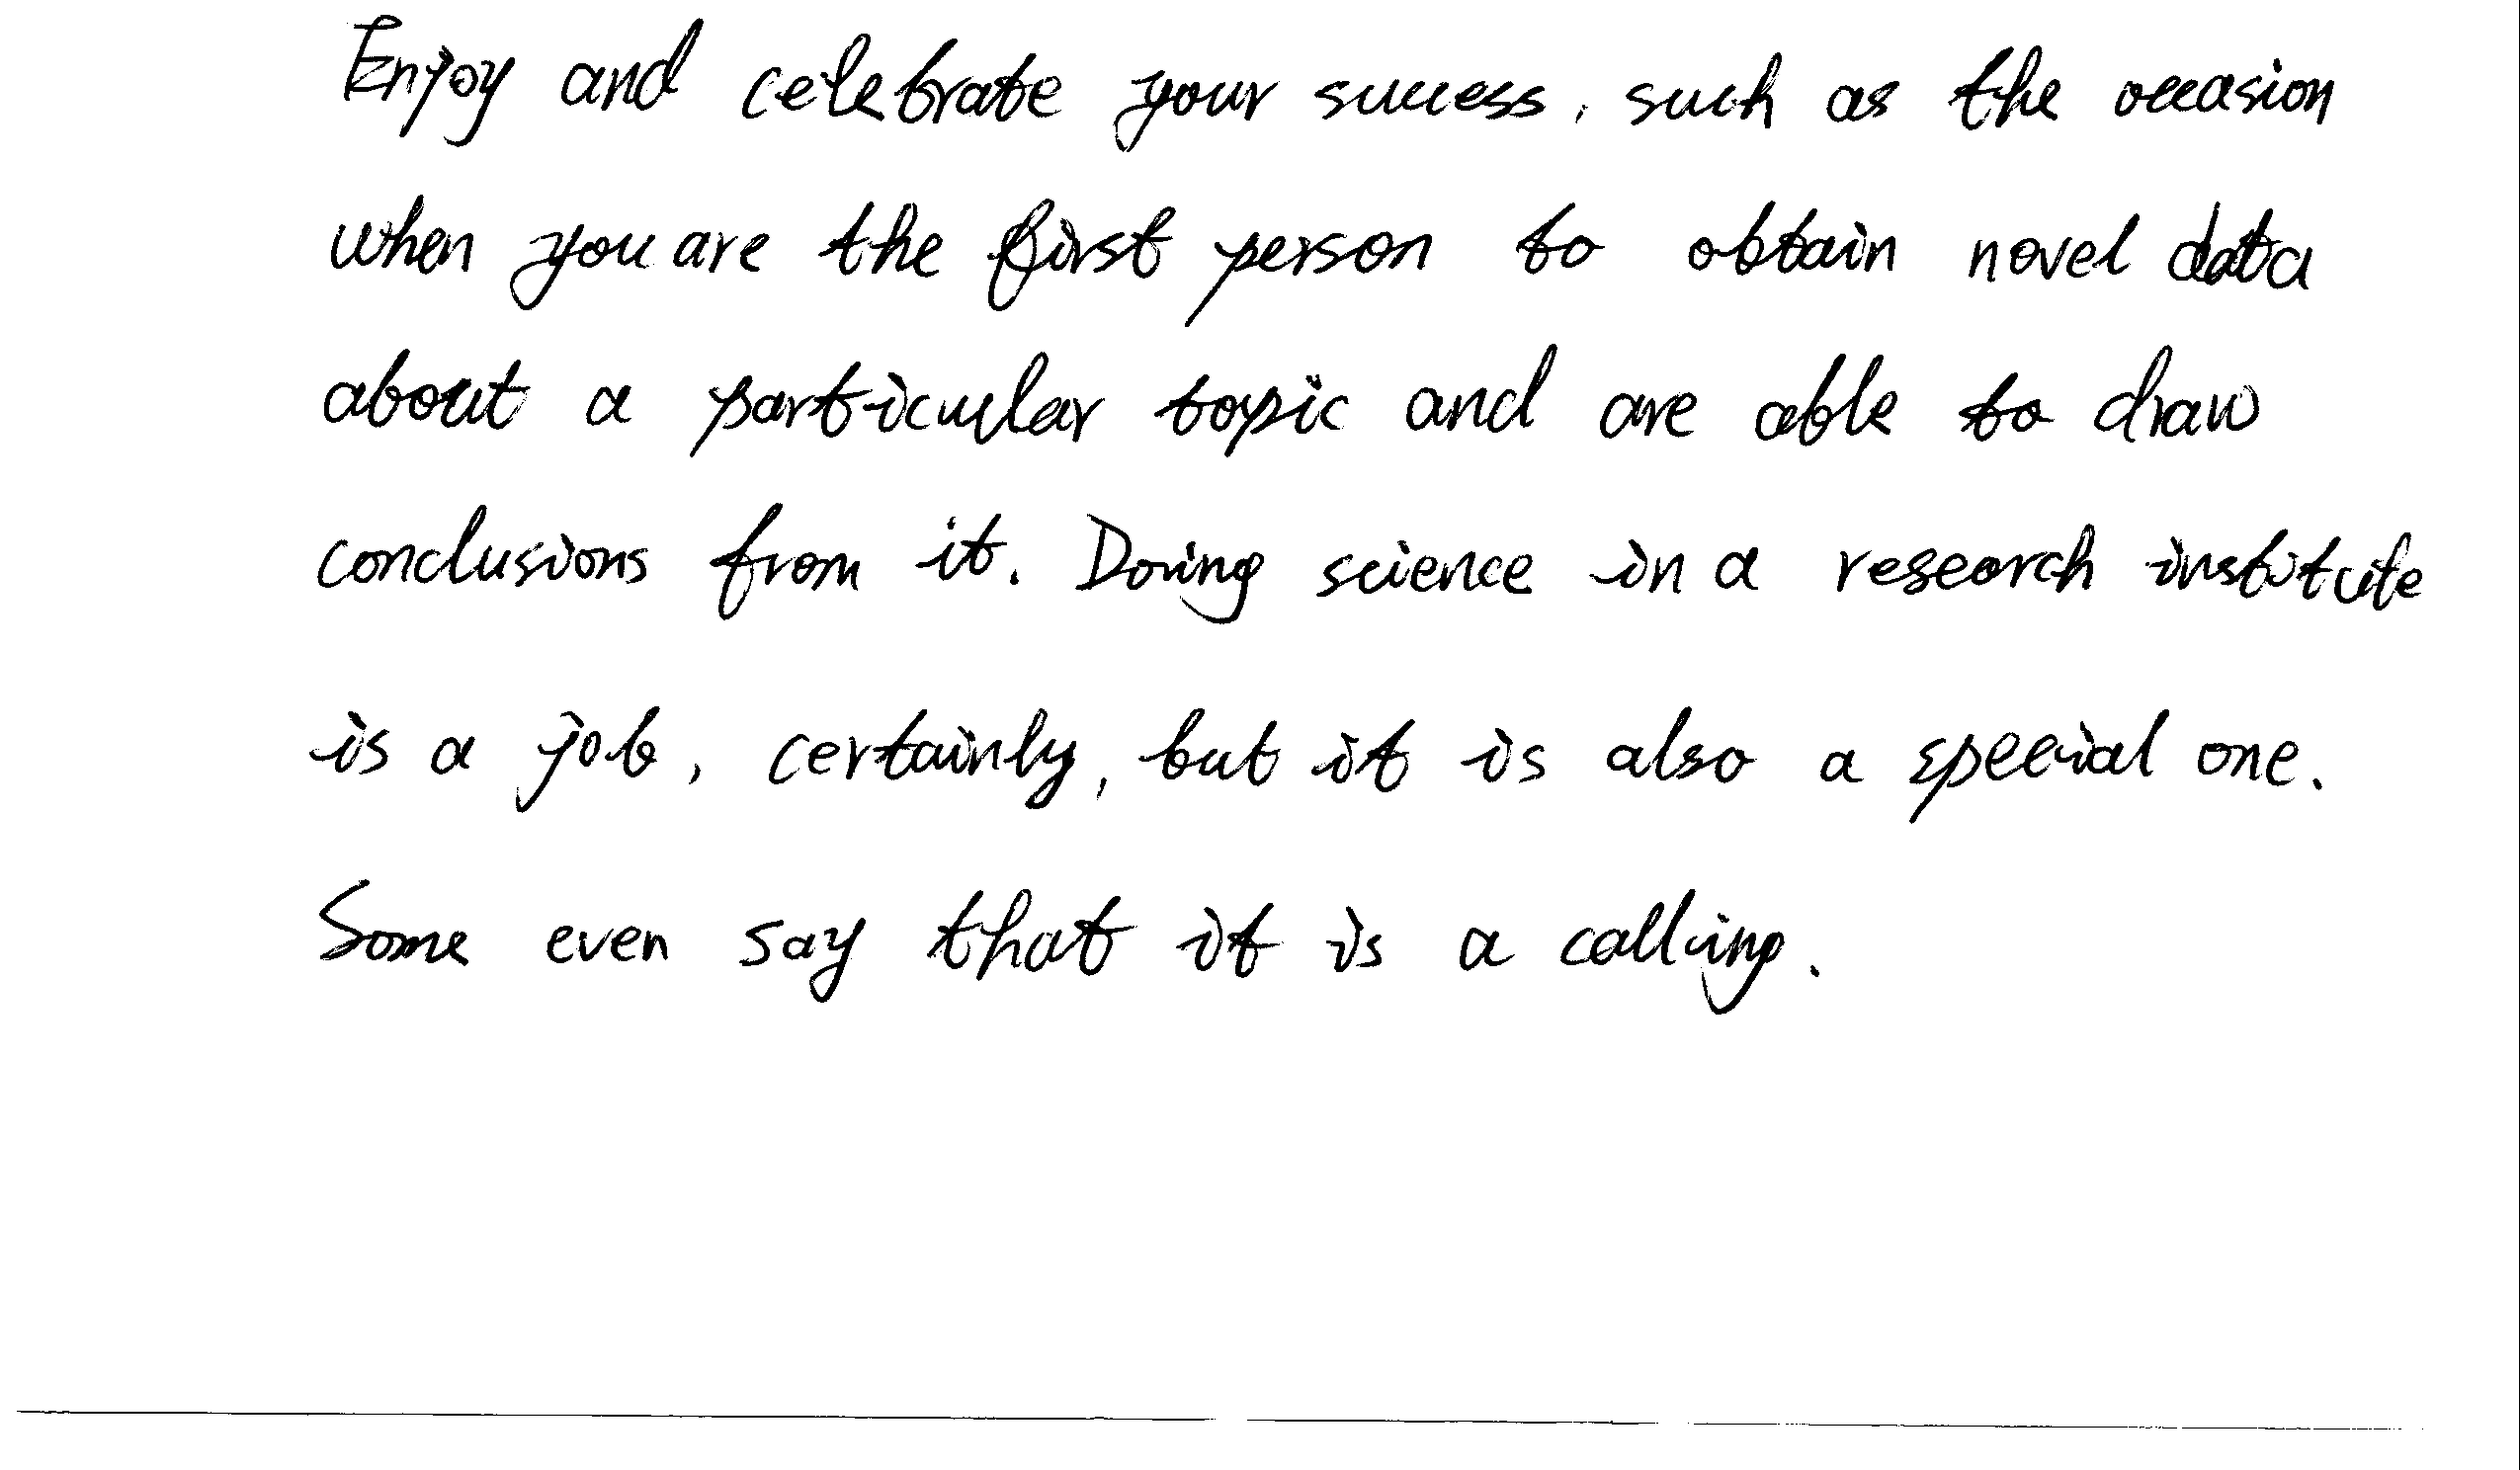 Enjoy and celebrate your success, such as the occasion
when you are the first person to obtain novel data
about a particular topic and are able to draw
conclusions from it. Doing science in a research institute
is a job, certainly, but it is also a special one.
Some even say that it is a calling.